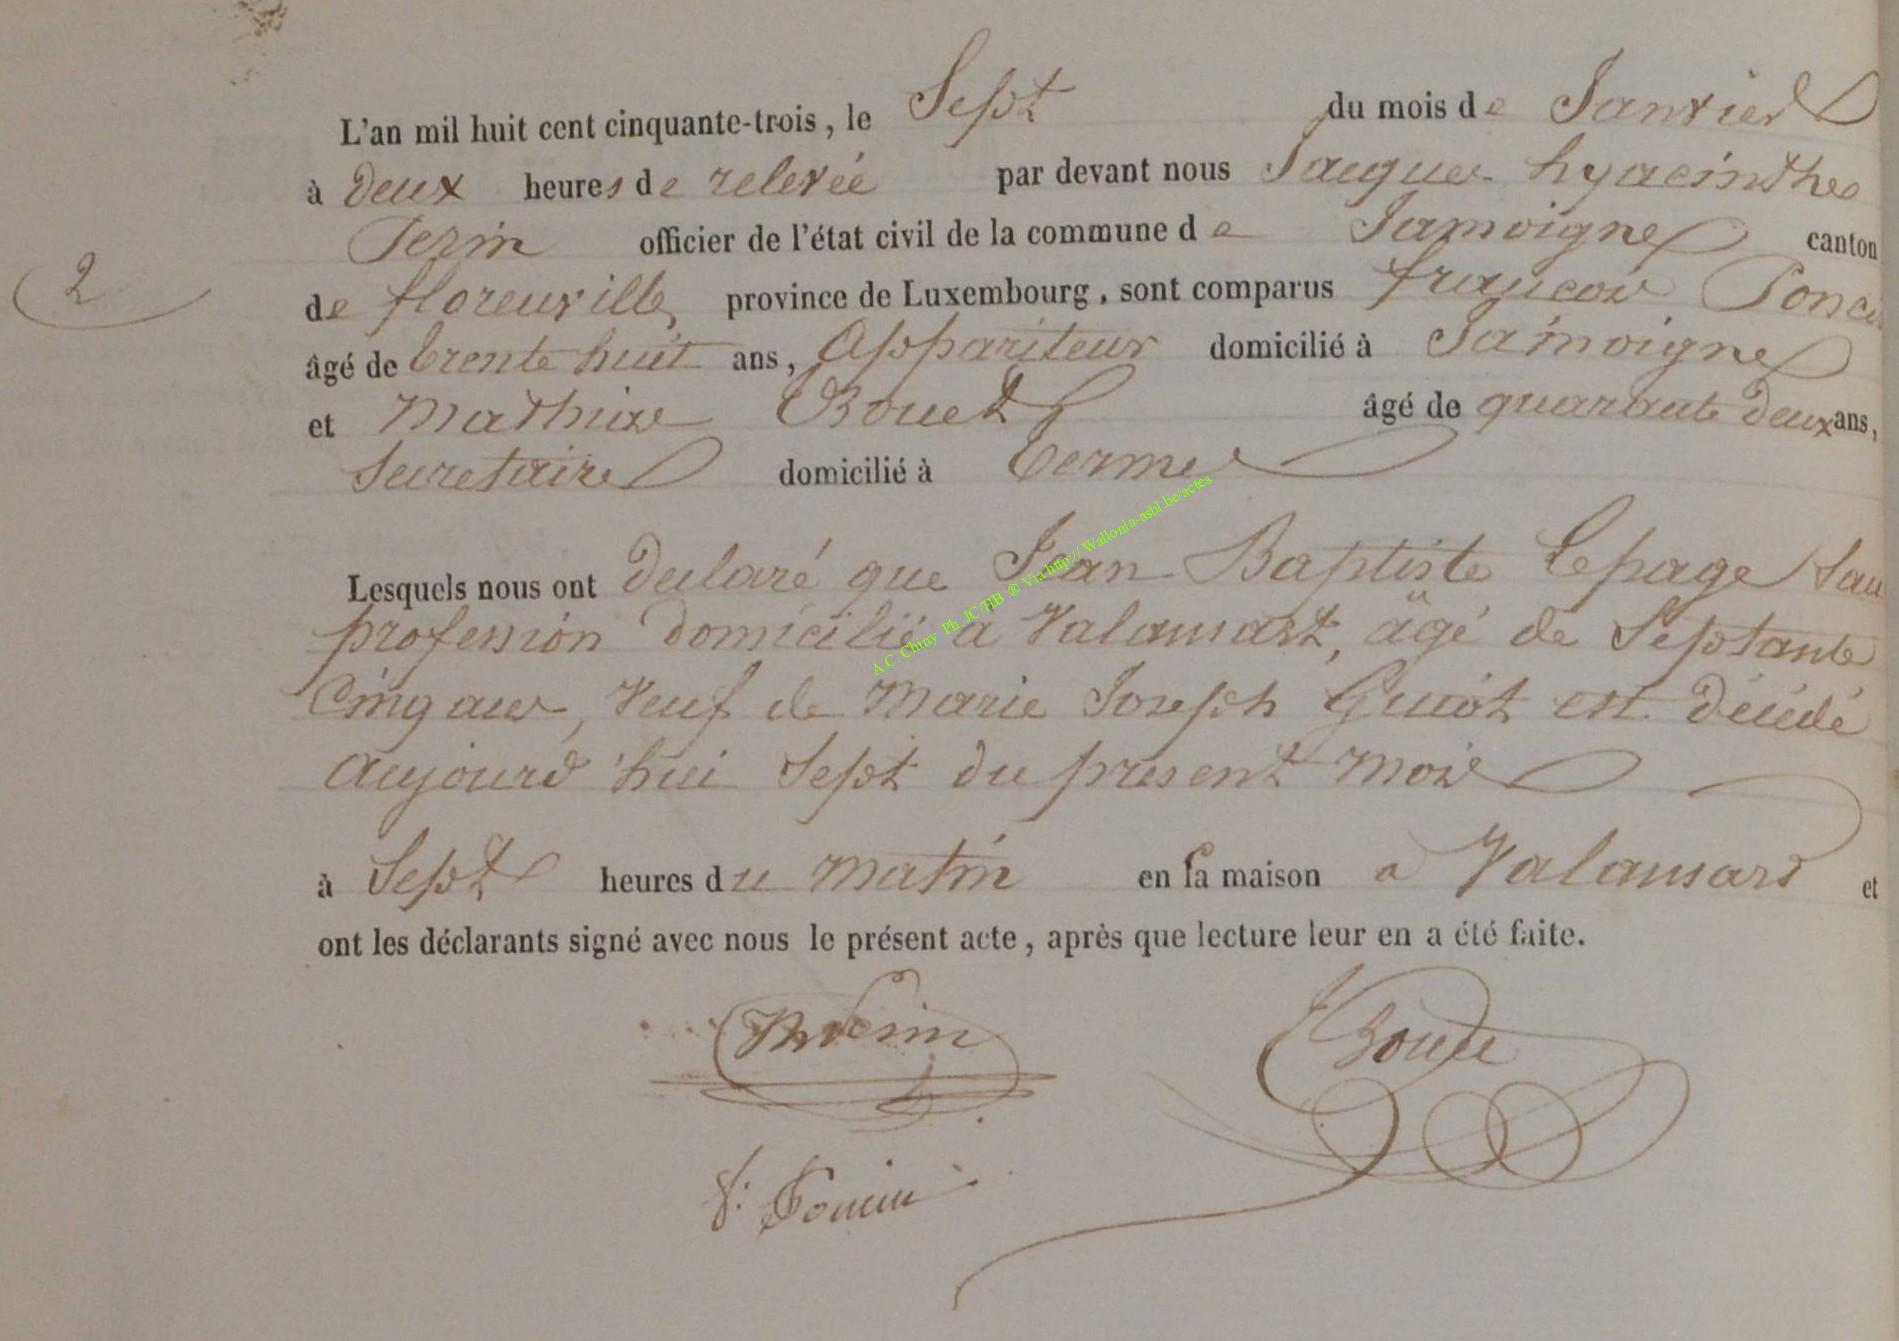 L'an mil huit cent cinquante-trois, le Sept du mois de Janvier
à deux heures de relevée par devant nous Jacques hyacinthe
Perin officier de l'état civil de la commune de Jamoigne canton
2
de florenville, province de Luxembourg, sont comparus françois
âgé de trente huit ans, Appariteur domicilié à Jamoigne
et Mathieu Bouet âgé de quarante deux ans,
Secretaire domicilié à Termes
Lesquels nous ont declaré que Jean Baptiste Lepage
profession domicilié à Valansart, âgé de Septante
Cinq ans, Veuf de Marie Joseph Guiot est décédé
Aujourd'hui Sept du present mois
à Sept heures du matin en sa maison a Valansart et
ont les déclarants signé avec nous le présent acte, après que lecture leur en a été faite.
A.C. Chiny Ph JC/HB ® Via http:// Wallonia-asbl.be/actes